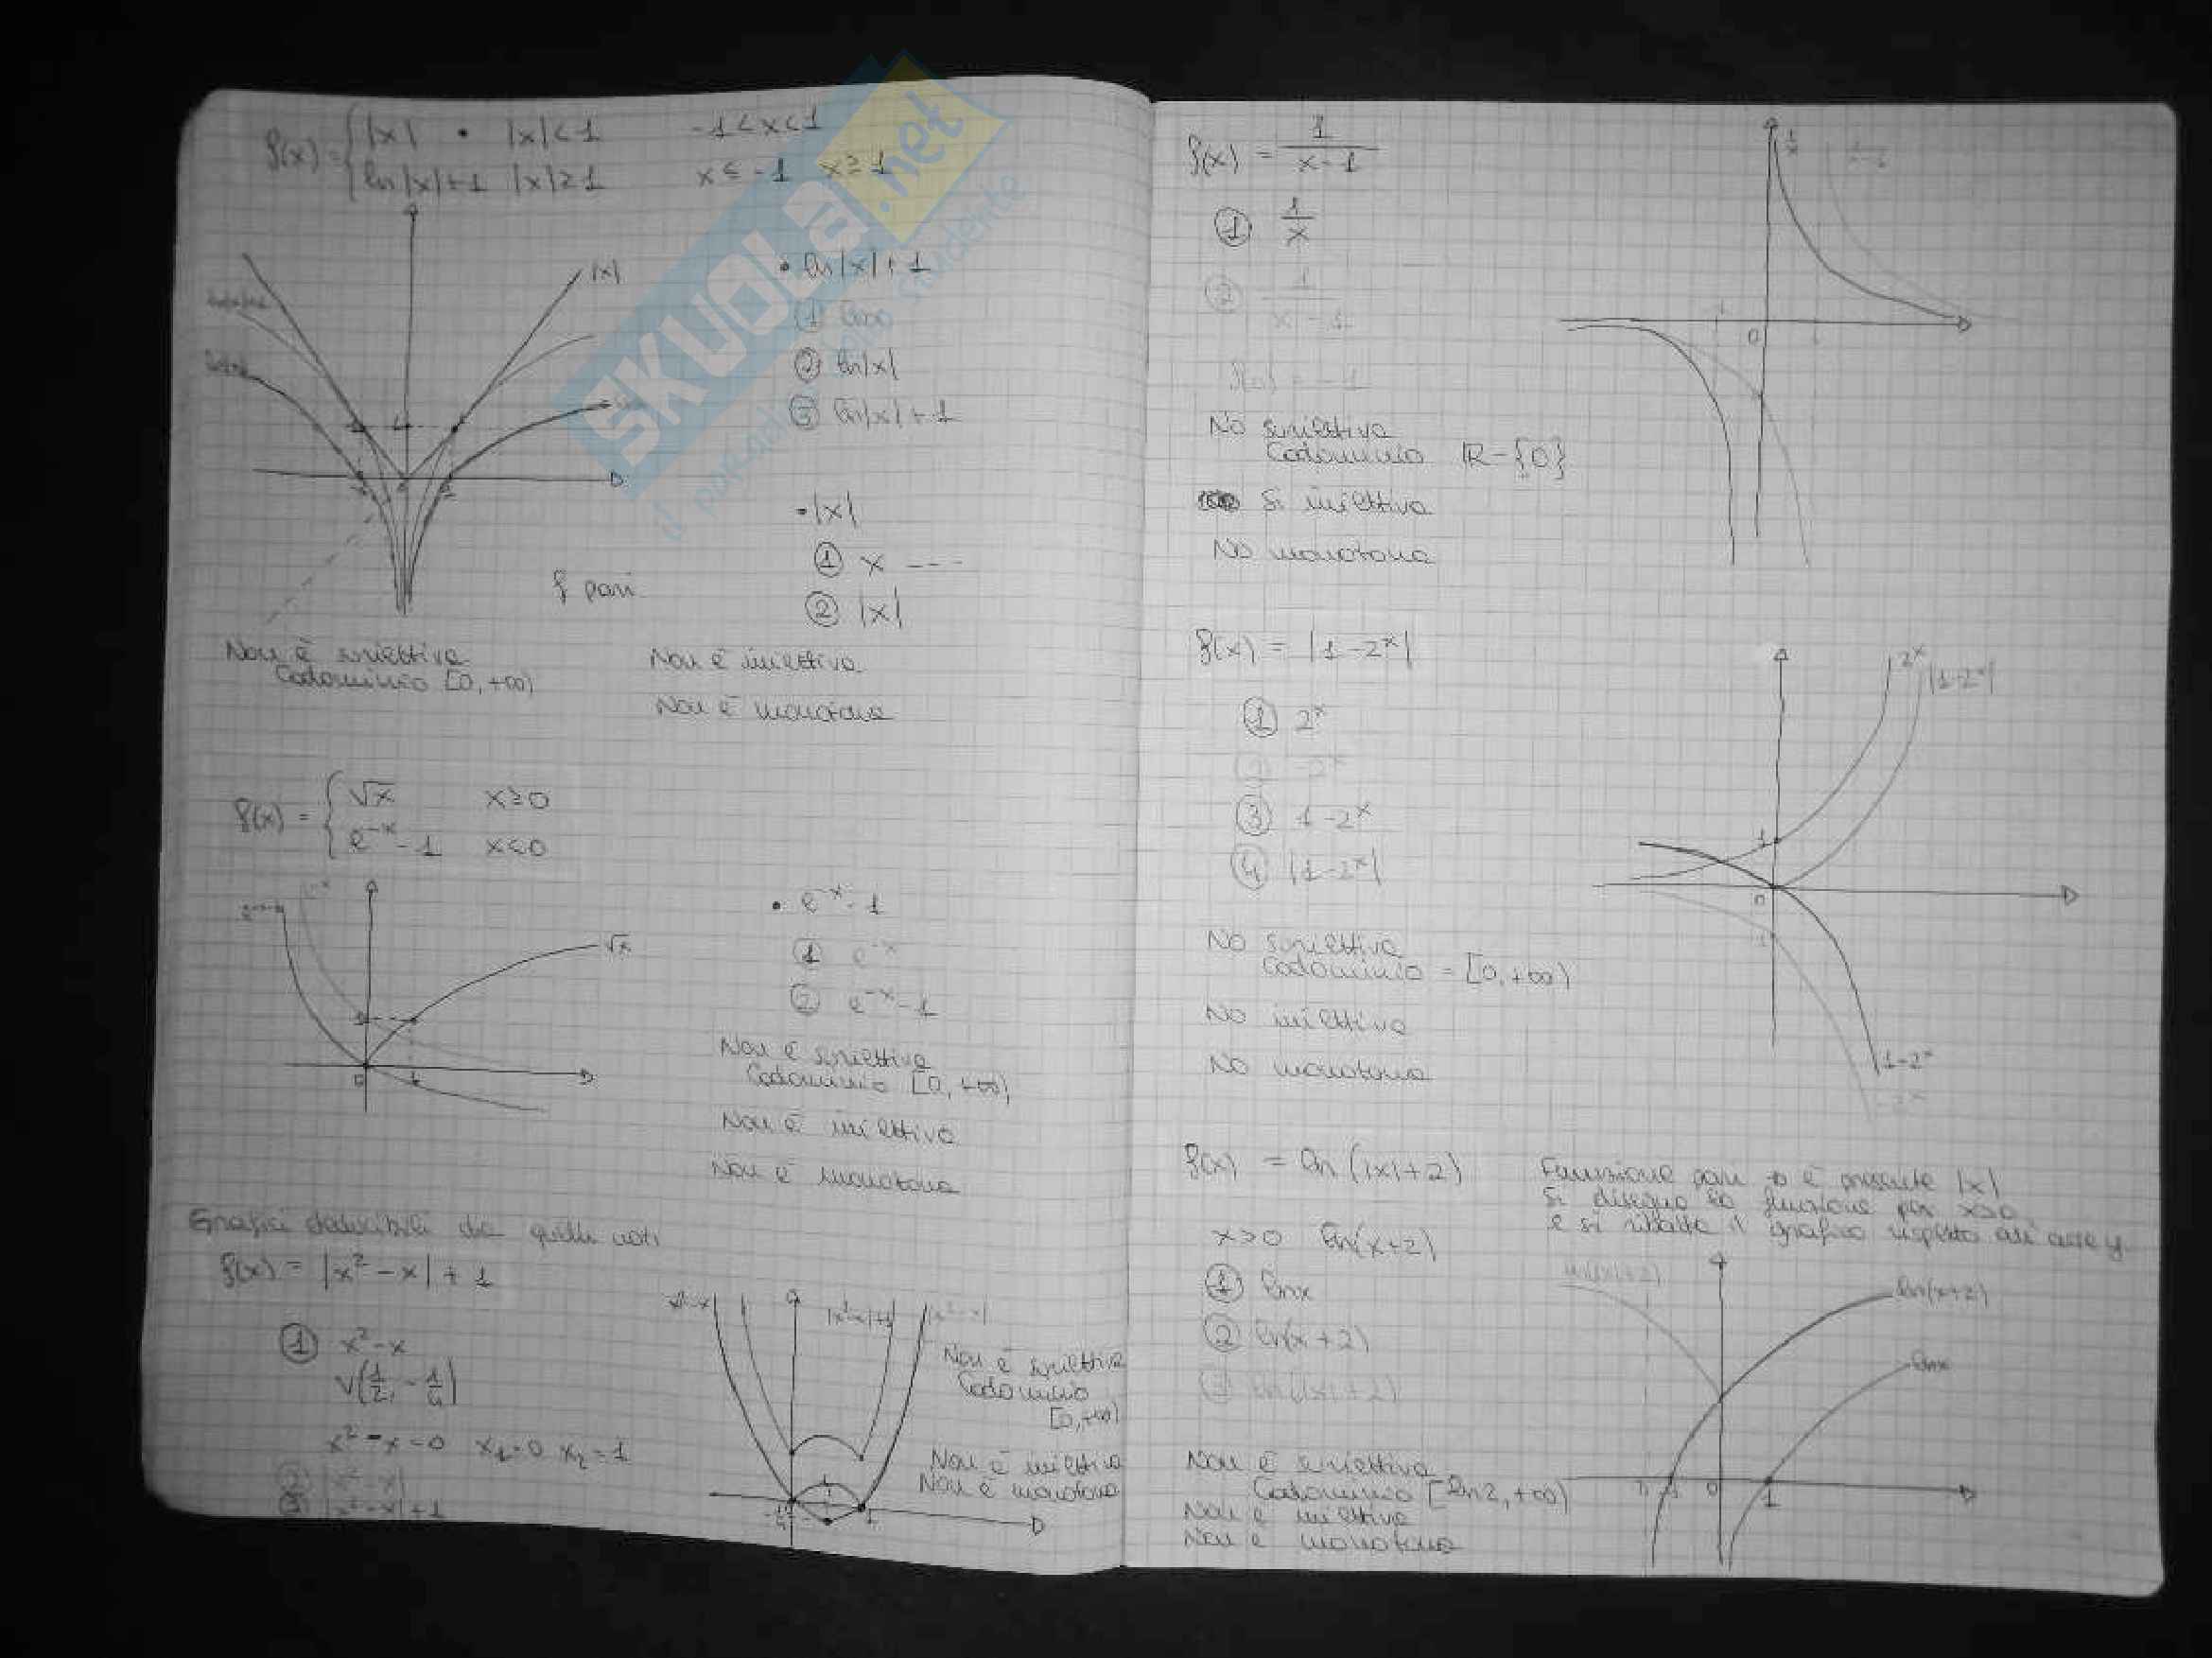 f(x) = { |x| • |x|<1 -1<x<1
ln|x|+1 |x|≥1 x≤-1 x≥1
|x|
• ln|x|+1
① lnx
② ln|x|
③ ln|x|+1
• |x|
① x ---
② |x|
f pari
Non è suriettiva
Codominio [0,+∞)
Non è iniettiva
Non è monotona
f(x) = { √x x≥0
e^-x - 1 x≤0
√x
• e^-x - 1
① e^-x
② e^-x - 1
Non è suriettiva
Codominio [0,+∞)
Non è iniettiva
Non è monotona
Grafici deducibili da quelli noti
f(x) = |x²-x|+1
① x²-x
V(1/2, -1/4)
x²-x=0 x₁=0 x₂=1
② |x²-x|
③ |x²-x|+1
x²-x
|x²-x|+1
|x²-x|
Non è suriettiva
Codominio
[0,+∞)
Non è iniettiva
Non è monotona
f(x) = 1/(x-1)
① 1/x
② 1/(x-1)
f(0) = -1
No suriettiva
Codominio R-{0}
Si iniettiva
No monotona
1/x
1/(x-1)
0
f(x) = |1-2^x|
① 2^x
② -2^x
③ 1-2^x
④ |1-2^x|
No suriettiva
Codominio = [0,+∞)
No iniettiva
No monotona
2^x
|1-2^x|
1
0
-1
1-2^x
-2^x
f(x) = ln(|x|+2)
Funzione pari → è presente |x|
Si disegna la funzione per x>0
e si ribalta il grafico rispetto all'asse y
x>0 ln(x+2)
① lnx
② ln(x+2)
③ ln(|x|+2)
Non è suriettiva
Codominio [ln2,+∞)
Non è iniettiva
Non è monotona
ln(|x|+2)
ln(x+2)
lnx
0
1
SKUOLA.net
il paradiso dello studente